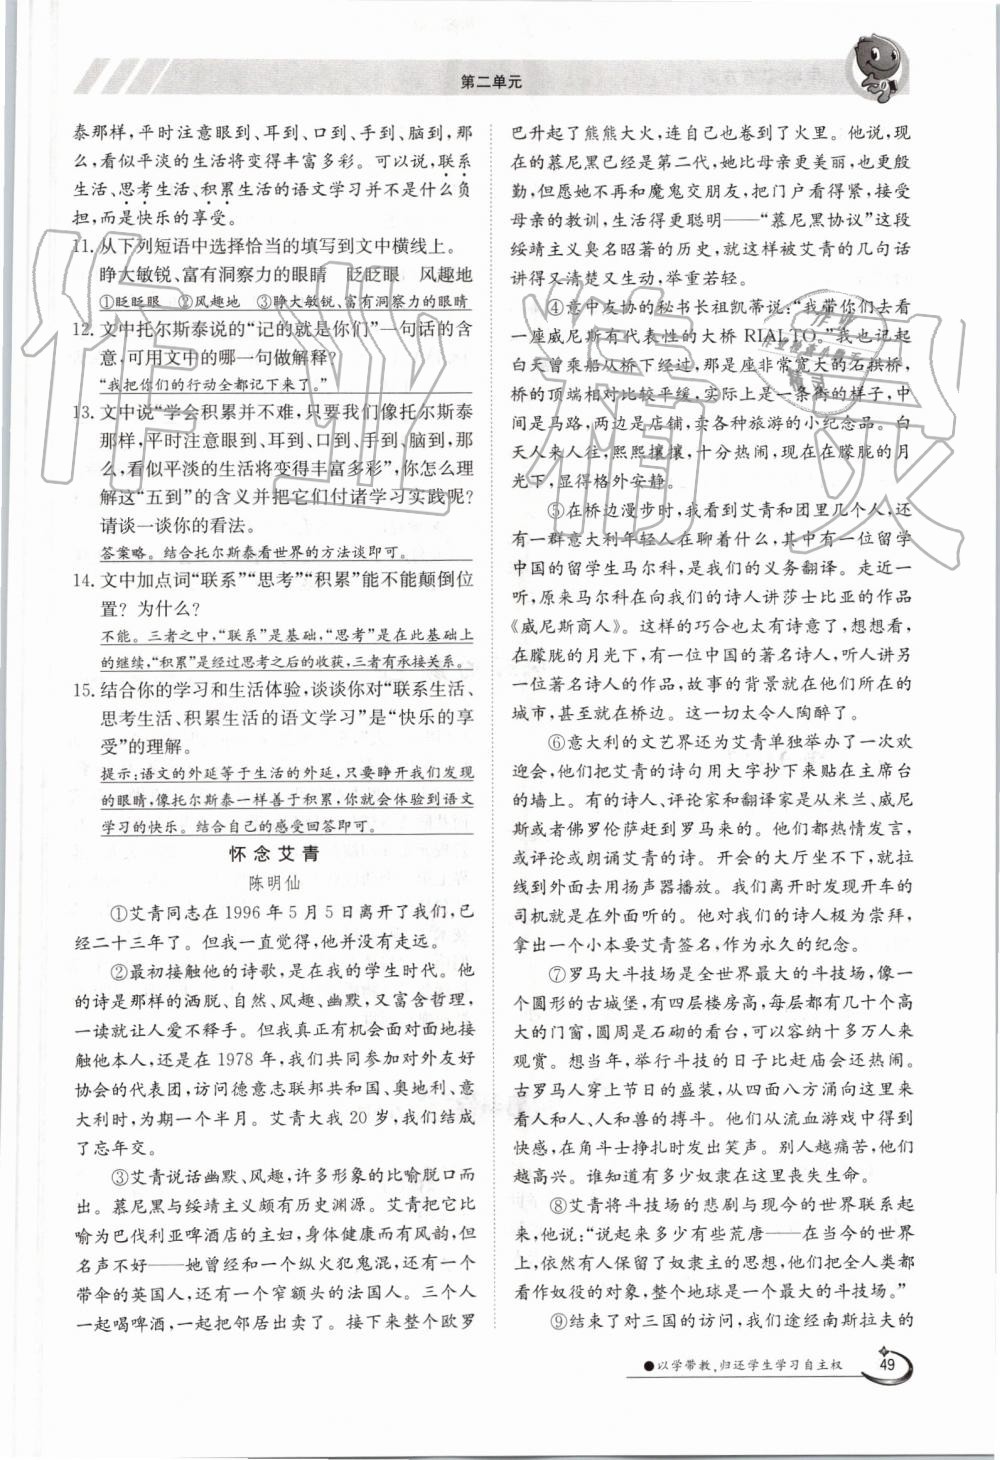 第二单元
泰那样,平时注意眼到、耳到、口到、手到、脑到,那
么,看似平淡的生活将变得丰富多彩。可以说,联系
生活、思考生活、积累生活的语文学习并不是什么负
担,而是快乐的享受。
11. 从下列短语中选择恰当的填写到文中横线上。
睁大敏锐、富有洞察力的眼睛　眨眨眼　风趣地
①眨眨眼　②风趣地　③睁大敏锐、富有洞察力的眼睛
12. 文中托尔斯泰说的“记的就是你们”一句话的含
意,可用文中的哪一句做解释?
“我把你们的行动全都记下来了。”
13. 文中说“学会积累并不难,只要我们像托尔斯泰
那样,平时注意眼到、耳到、口到、手到、脑到,那
么,看似平淡的生活将变得丰富多彩”,你怎么理
解这“五到”的含义并把它们付诸学习实践呢?
请谈一谈你的看法。
答案略。结合托尔斯泰看世界的方法谈即可。
14. 文中加点词“联系”“思考”“积累”能不能颠倒位
置?为什么?
不能。三者之中,“联系”是基础,“思考”是在此基础上
的继续,“积累”是经过思考之后的收获,三者有承接关系。
15. 结合你的学习和生活体验,谈谈你对“联系生活、
思考生活、积累生活的语文学习”是“快乐的享
受”的理解。
提示:语文的外延等于生活的外延,只要睁开我们发现
的眼睛,像托尔斯泰一样善于积累,你就会体验到语文
学习的快乐。结合自己的感受回答即可。
怀念艾青
陈明仙
①艾青同志在 1996 年 5 月 5 日离开了我们,已
经二十三年了。但我一直觉得,他并没有走远。
②最初接触他的诗歌,是在我的学生时代。他
的诗是那样的洒脱、自然、风趣、幽默,又富含哲理,
一读就让人爱不释手。但我真正有机会面对面地接
触他本人,还是在 1978 年,我们共同参加对外友好
协会的代表团,访问德意志联邦共和国、奥地利、意
大利时,为期一个半月。艾青大我 20 岁,我们结成
了忘年交。
③艾青说话幽默、风趣,许多形象的比喻脱口而
出。慕尼黑与绥靖主义颇有历史渊源。艾青把它比
喻为巴伐利亚啤酒店的主妇,身体健康而有风韵,但
名声不好——她曾经和一个纵火犯鬼混,还有一个
带伞的英国人,还有一个窄额头的法国人。三个人
一起喝啤酒,一起把邻居出卖了。接下来整个欧罗
巴升起了熊熊大火,连自己也卷到了火里。他说,现
在的慕尼黑已经是第二代,她比母亲更美丽,也更殷
勤,但愿她不再和魔鬼交朋友,把门户看得紧,接受
母亲的教训,生活得更聪明——“慕尼黑协议”这段
绥靖主义臭名昭著的历史,就这样被艾青的几句话
讲得又清楚又生动,举重若轻。
④意中友协的秘书长祖凯蒂说:“我带你们去看
一座威尼斯有代表性的大桥 RIALTO。”我记起
白天曾乘船从桥下经过,那是非常宽大的石拱桥,
桥的顶端相对比较平缓,实际上是一条街的样子,中
间是马路,两边是店铺,卖各种旅游的小纪念品。白
天人来人往,熙熙攘攘,十分热闹,现在在朦胧的月
光下,显得格外安静。
⑤在桥边漫步时,我看到艾青和团里几个人,还
有一群意大利年轻人在聊着什么,其中有一位留学
中国的留学生马尔科,是我们的义务翻译。走近一
听,原来马尔科在向我们的诗人讲莎士比亚的作品
《威尼斯商人》。这样的巧合也太有诗意了,想想看,
在朦胧的月光下,有一位中国的著名诗人,听人讲另
一位著名诗人的作品,故事的背景就在他们所在的
城市,甚至就在桥边。这一切太令人陶醉了。
⑥意大利的文艺界还为艾青单独举办了一次欢
迎会,他们把艾青的诗句用大字抄下来贴在主席台
的墙上。有的诗人、评论家和翻译家是从米兰、威尼
斯或者佛罗伦萨赶到罗马来的。他们都热情发言,
或评论或朗诵艾青的诗。开会的大厅坐不下,就拉
线到外面去用扬声器播放。我们离开时发现开车的
司机就是在外面听的。他对我们的诗人极为崇拜,
拿出一个小本要艾青签名,作为永久的纪念。
⑦罗马大斗技场是全世界最大的斗技场,像一
个圆形的古城堡,有四层楼房高,每层都有几十个高
大的门窗,圆周是石砌的看台,可以容纳十多万人来
观赏。想当年,举行斗技的日子比赶庙会还热闹。
古罗马人穿上节日的盛装,从四面八方涌向这里来
看人和人、人和兽的搏斗。他们从流血游戏中得到
快感,在角斗士挣扎时发出笑声。别人越痛苦,他们
越高兴。谁知道有多少奴隶在这里丧失生命。
⑧艾青将斗技场的悲剧与现今的世界联系起
来,他说:“说起来多少有些荒唐——在当今的世界
上,依然有人保留了奴隶主的思想,他们把全人类都
看作奴役的对象,整个地球是一个最大的斗技场。”
⑨结束了对三国的访问,我们途经南斯拉夫的
●以学带教,归还学生学习自主权
49
作业精灵